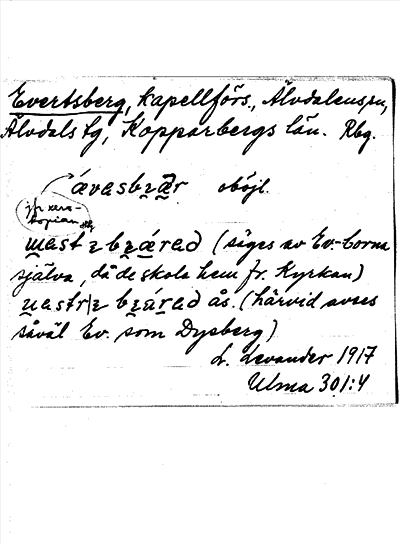 Evertsberg, kapellförs., Älvdalens sn,
Älvdals tg, Kopparbergs län. Rbg.
ávasbɪær oböjl.
jfr xero-
kopian
ɯast ɪ bɪárad (säges av Ev-borna
själva, då de skola hem fr. Kyrkan)
uastr|ɪ bɪárad ås. (härvid avses
såväl Ev. som Dysberg)
L. Levander 1917
Ulma 301:4